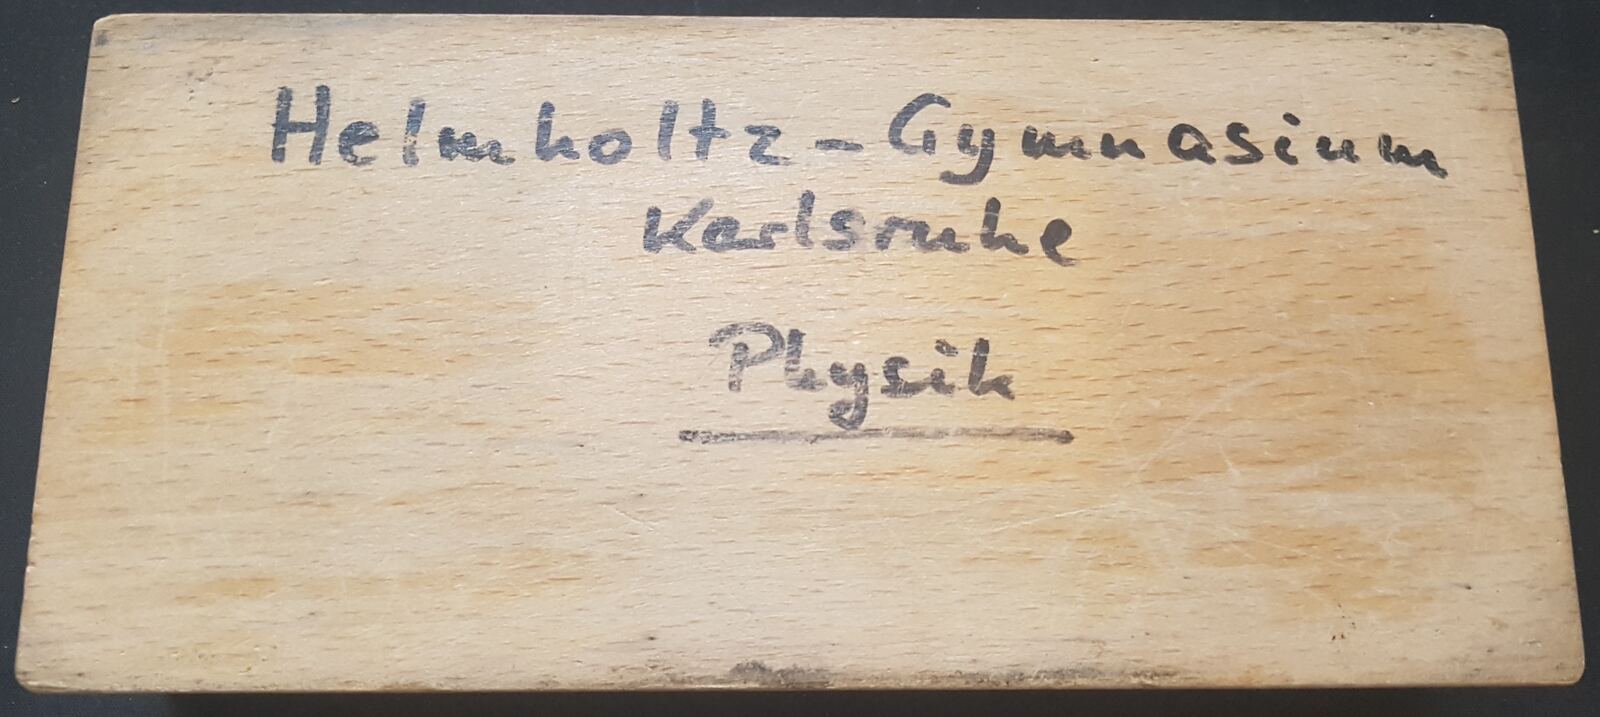 Helmholtz-Gymnasium
Karlsruhe
Physik